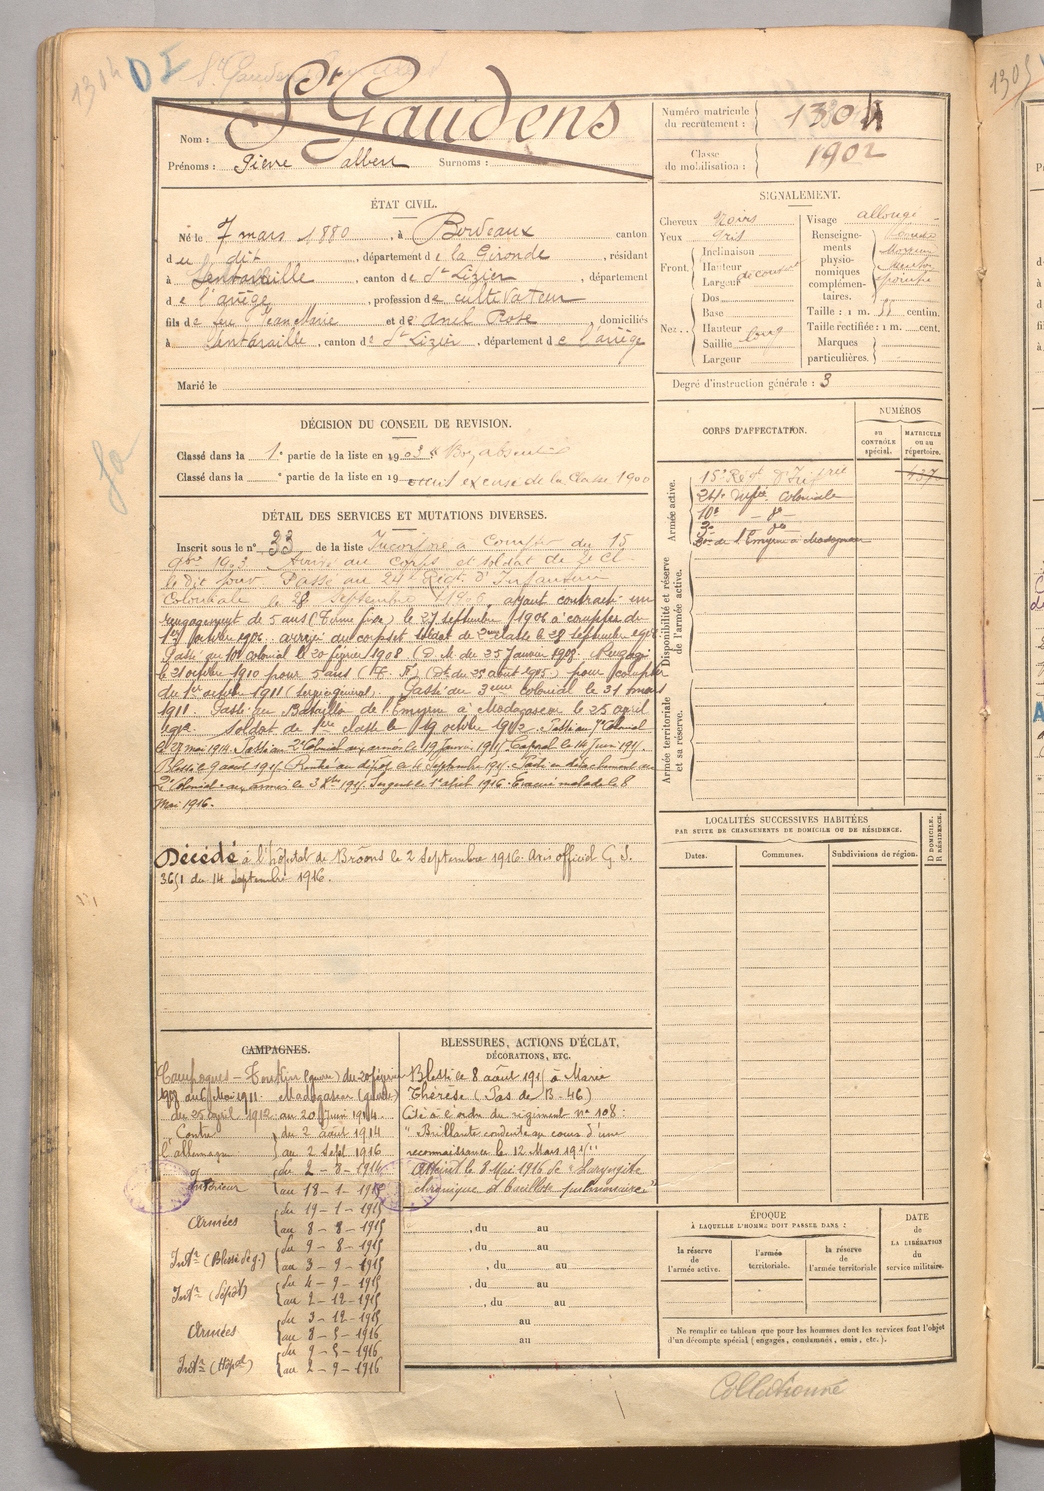 1304 D I
Nom : St Gaudens
Prénoms : Pierre albert Surnoms :
Numéro matricule
du recrutement : 1304
Classe
de mobilisation : 1902
ÉTAT CIVIL.
Né le 7 mars 1880, à Bordeaux canton
du dit, département de la Gironde, résidant
à Sentaraille, canton de St Lizier, département
de l'ariège, profession de cultivateur
fils de feu Jean Marie et de Anel Rose, domiciliés
à Sentaraille, canton de St Lizier, département de l'ariège
Marié le
SIGNALEMENT.
Cheveux noirs
Yeux gris
Front. Inclinaison
Hauteur
Largeur
Nez .. Dos
Base
Hauteur
Saillie long
Largeur
Visage allongé
Renseigne-
ments
physio-
nomiques
complémen-
taires.
Taille : 1 m. centim.
Taille rectifiée : 1 m. cent.
Marques
particulières.
Degré d'instruction générale : 3
DÉCISION DU CONSEIL DE REVISION.
Classé dans la 1e partie de la liste en 1903 Bon absent
Classé dans la e partie de la liste en 19 omis excusé de la Classe 1900
CORPS D'AFFECTATION.
NUMÉROS
au
CONTRÔLE
spécial.
MATRICULE
ou au
répertoire.
Armée active.
15e Régt d'Inftrie 437
24e Inftie Coloniale
10e — do —
3e do
Bon de l'Emyrne à Madagascar
Disponibilité et réserve
de l'armée active.
Armée territoriale
et sa réserve.
DÉTAIL DES SERVICES ET MUTATIONS DIVERSES.
Inscrit sous le no 33 de la liste Incorporé à Compter du 15
9bre 1903 Arrivé au corps et soldat de 2e Cl
le dit jour Passé au 24e Régt d'Infanterie
Coloniale le 28 septembre 1906, ayant contracté un
engagement de 5 ans (Terme fixe) le 27 septembre 1906 à compter du
1er octobre 1906. arrivé du corps et soldat de 2me classe le 28 septembre 1906
Passé au 10e Colonial le 20 février 1908 (D. M. du 25 Janvier 1908. Rengagé
le 21 octobre 1910 pour 5 ans pour compter
du 1er octobre 1911 Passé au 3eme colonial le 31 mars
1911. Passé au Bataillon de l'Emyrne à Madagascar le 25 avril
1912 Soldat de 1ère classe le 19 octobre 1912. Passé au 7e Colonial
le 27 mai 1914. Passé au 2e Colonial aux armées le 19 Janvier 1915. Caporal le 14 Juin 1915.
Blessé le 9 août 1915. Rentré au dépôt le 4 Septembre 1915. Passé en détachement au
2e Colonial aux armées le 3 Xbre 1915. Sergent le 1er avril 1916. Evacué malade le 8
Mai 1916.
Décédé à l'hôpital de Broons le 2 Septembre 1916. Avis officiel G S.
3651 du 14 Septembre 1916.
LOCALITÉS SUCCESSIVES HABITÉES
PAR SUITE DE CHANGEMENTS DE DOMICILE OU DE RÉSIDENCE.
Dates. Communes. Subdivisions de région.
D DOMICILE.
R RÉSIDENCE.
CAMPAGNES.
Campagnes - Tonkin (guerre) du 20 février
1908 au 6 Mai 1911. Madagascar (guerre)
du 25 avril 1912 au 20 Juin 1914.
Contre du 2 août 1914
l'allemagne au 2 Sept 1916
Intérieur du 2 - 8 - 1914
au 18 - 1 - 1915
Armées du 19 - 1 - 1915
au 8 - 8 - 1915
Intr (Blessé de g.) du 9 - 8 - 1915
au 3 - 9 - 1915
Intr (dépôt) du 4 - 9 - 1915
au 2 - 12 - 1915
Armées du 3 - 12 - 1915
au 8 - 5 - 1916
Intr (Hôpal) du 9 - 5 - 1916
au 2 - 9 - 1916
BLESSURES, ACTIONS D'ÉCLAT,
DÉCORATIONS, ETC.
Blessé le 8 août 1915 à Marie
Thérèse (Pas de B - 46)
Cité à l'ordre du régiment no 108 :
" Brillante conduite au cours d'une
reconnaissance le 12 Mars 1915 "
Atteint le 8 Mai 1916 de " Laryngite
chronique et bacillose pulmonaire "
, du au
, du au
, du au
, du au
, du au
au
au
ÉPOQUE
À LAQUELLE L'HOMME DOIT PASSER DANS :
la réserve
de
l'armée active.
l'armée
territoriale.
la réserve
de
l'armée territoriale
DATE
de
LA LIBÉRATION
du
service militaire.
Ne remplir ce tableau que pour les hommes dont les services font l'objet
d'un décompte spécial (engagés, condamnés, omis, etc.).
Collationné
1305